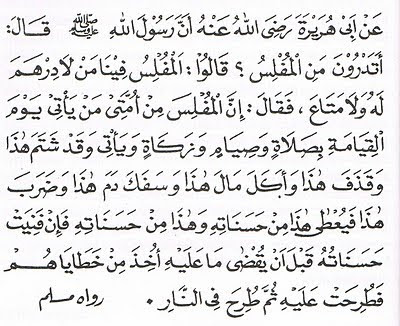 عَنْ اَبِى هُرَيْرَةَ رَضَىَ اللهُ عَنْهُ اَنَّ رَسُولَ اللهِ ﷺ قَالَ:
أَتَدْرُونَ مَنِ الْمُفْلِسُ؟ قَالُوا: اَلْمُفْلِسُ فِينَا مَنْ لَادِرْهَمَ
لَهُ وَلَامَتَاعَ، فَقَالَ: إِنَّ الْمُفْلِسَ مِنْ أُمَّتِى مَنْ يَأْتِى يَوْمَ
الْقِيَامَةِ بِصَلَاةٍ وَصِيَامٍ وَزَكَاةٍ وَيَأْتِى وَقَدْ شَتَمَ هٰذَا
وَقَذَفَ هٰذَا وَأَكَلَ مَالَ هٰذَا وَسَفَكَ دَمَ هٰذَا وَضَرَبَ
هٰذَا فَيُعْطٰى هٰذَا مِنْ حَسَنَاتِهِ وَهٰذَا مِنْ حَسَنَاتِهِ فَإِنْ فَنِيَتْ
حَسَنَاتُهُ قَبْلَ اَنْ يُقْضٰى مَا عَلَيْهِ أُخِذَ مِنْ خَطَايَاهُمْ
فَطُرِحَتْ عَلَيْهِ ثُمَّ طُرِحَ فِى النَّارِ. رواه مسلم